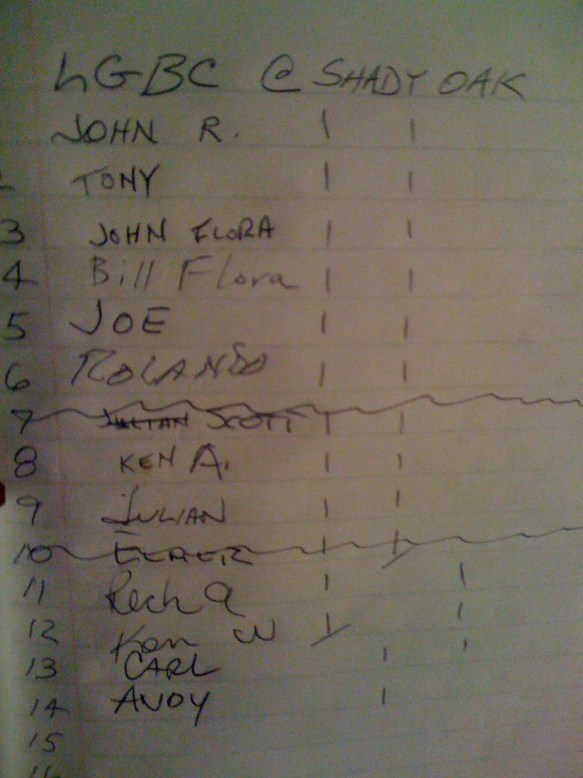 LGBC @ SHADY OAK
JOHN R. | |
TONY | |
3 JOHN FLORA | |
4 Bill Flora | |
5 JOE | |
6 ROLANDO | |
7 JULIAN SCOTT | |
8 KEN A. | |
9 JULIAN | |
10 ELMER | |
11 Rich a | |
12 Ken W | |
13 CARL | |
14 ANDY |
15